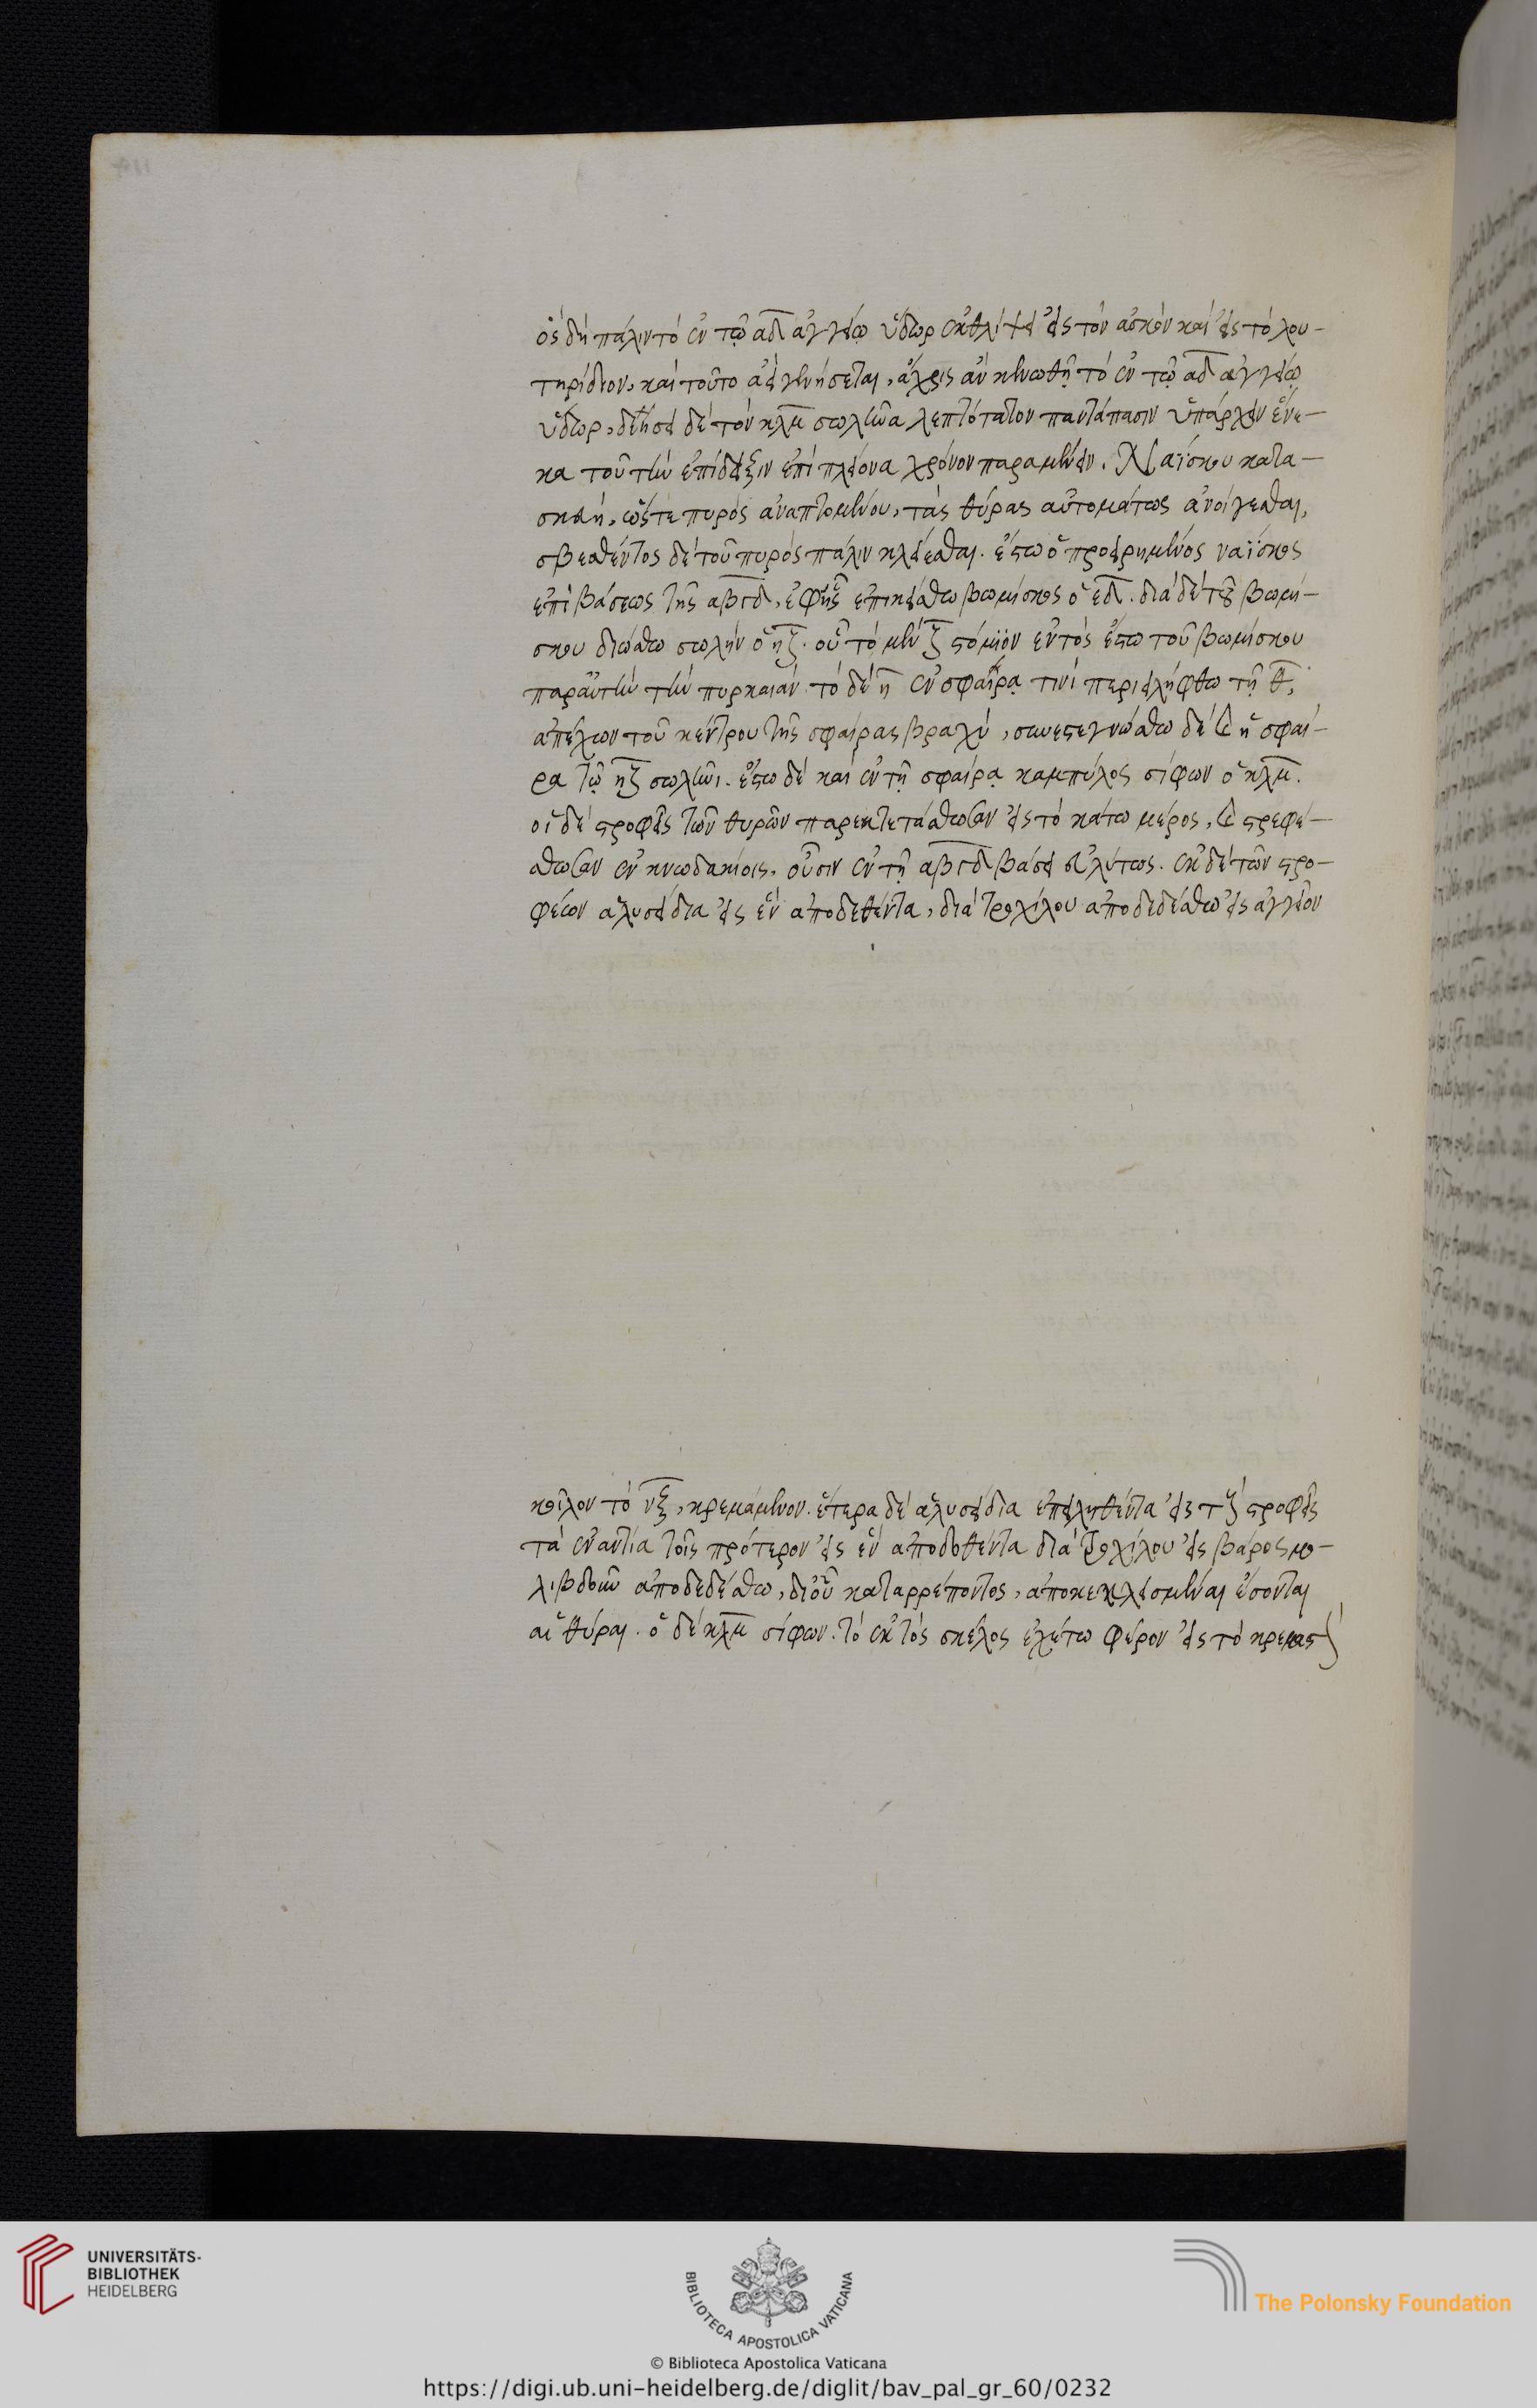 ὃς δὴ πάλιν τὸ ἐν τῷ αδ ἀγγείῳ ὕδωρ ἐκθλίψει εἰς τὸν ἀσκὸν καὶ εἰς τὸ λου-
τηρίδιον, καὶ τοῦτο ἀεὶ γενήσεται, ἄχρις ἂν κενωθῇ τὸ ἐν τῷ αδ ἀγγείῳ
ὕδωρ, δεήσει δὲ τὸν κλμ σωλῆνα λεπτότατον παντάπασιν ὑπάρχειν ἕνε-
κα τοῦ τὴν ἐπίδειξιν ἐπὶ πλείονα χρόνον παραμένειν. Ναΐσκου κατα-
σκευὴ, ὥστε πυρὸς ἀναπτομένου, τὰς θύρας αὐτομάτως ἀνοίγεσθαι,
σβεσθέντος δὲ τοῦ πυρὸς πάλιν κλείεσθαι. ἔστω ὁ προειρημένος ναΐσκος
ἐπὶ βάσεως τῆς αβγδ, ἐφ' ἧς ἐπικείσθω βωμίσκος ὁ εδ. διὰ δὲ τοῦ βωμί-
σκου διώσθω σωλὴν ὁ ηζ. οὗ τὸ μὲν ζ στόμιον ἐντὸς ἔστω τοῦ βωμίσκου
παρ' αὐτὴν τὴν πυρκαιάν τὸ δὲ η ἐν σφαίρᾳ τινὶ περιειλήφθω τῇ θ,
ἀπέχων τοῦ κέντρου τῆς σφαίρας βραχύ, συνεστεγνώσθω δὲ καὶ ἡ σφαί-
ρα τῷ ηζ σωλῆνι. ἔστω δὲ καὶ ἐν τῇ σφαίρᾳ καμπύλος σίφων ὁ κλμ.
οἱ δὲ στροφεῖς τῶν θυρῶν παρεκτετάσθωσαν εἰς τὸ κάτω μέρος, καὶ στρεφέ-
σθωσαν ἐν κνωδακίοις, οὖσιν ἐν τῇ αβγδ βάσει εὐλύτως. ἐκ δὲ τῶν στρο-
φέων ἁλυσείδια εἰς ἓν ἀποδεθέντα, διὰ τροχίλου ἀποδεδέσθω εἰς ἀγγεῖον
κοῖλον τὸ νξ, κρεμάμενον. ἕτερα δὲ ἁλυσείδια ἐπειληθέντα εἰς τοὺς στροφεῖς
τὰ ἐναντία τοῖς πρότερον εἰς ἓν ἀποδοθέντα διὰ τροχίλου εἰς βάρος μο-
λιβδοῦν ἀποδεδέσθω, δι' οὗ καταρρέποντος, ἀποκεκλεισμέναι ἔσονται
αἱ θύραι. ὁ δὲ κλμ σίφων. τὸ ἐκτὸς σκέλος ἐχέτω φέρον εἰς τὸ κρεμαστὸν
UNIVERSITÄTS-
BIBLIOTHEK
HEIDELBERG
BIBLIOTECA APOSTOLICA VATICANA
The Polonsky Foundation
© Biblioteca Apostolica Vaticana
https://digi.ub.uni-heidelberg.de/diglit/bav_pal_gr_60/0232